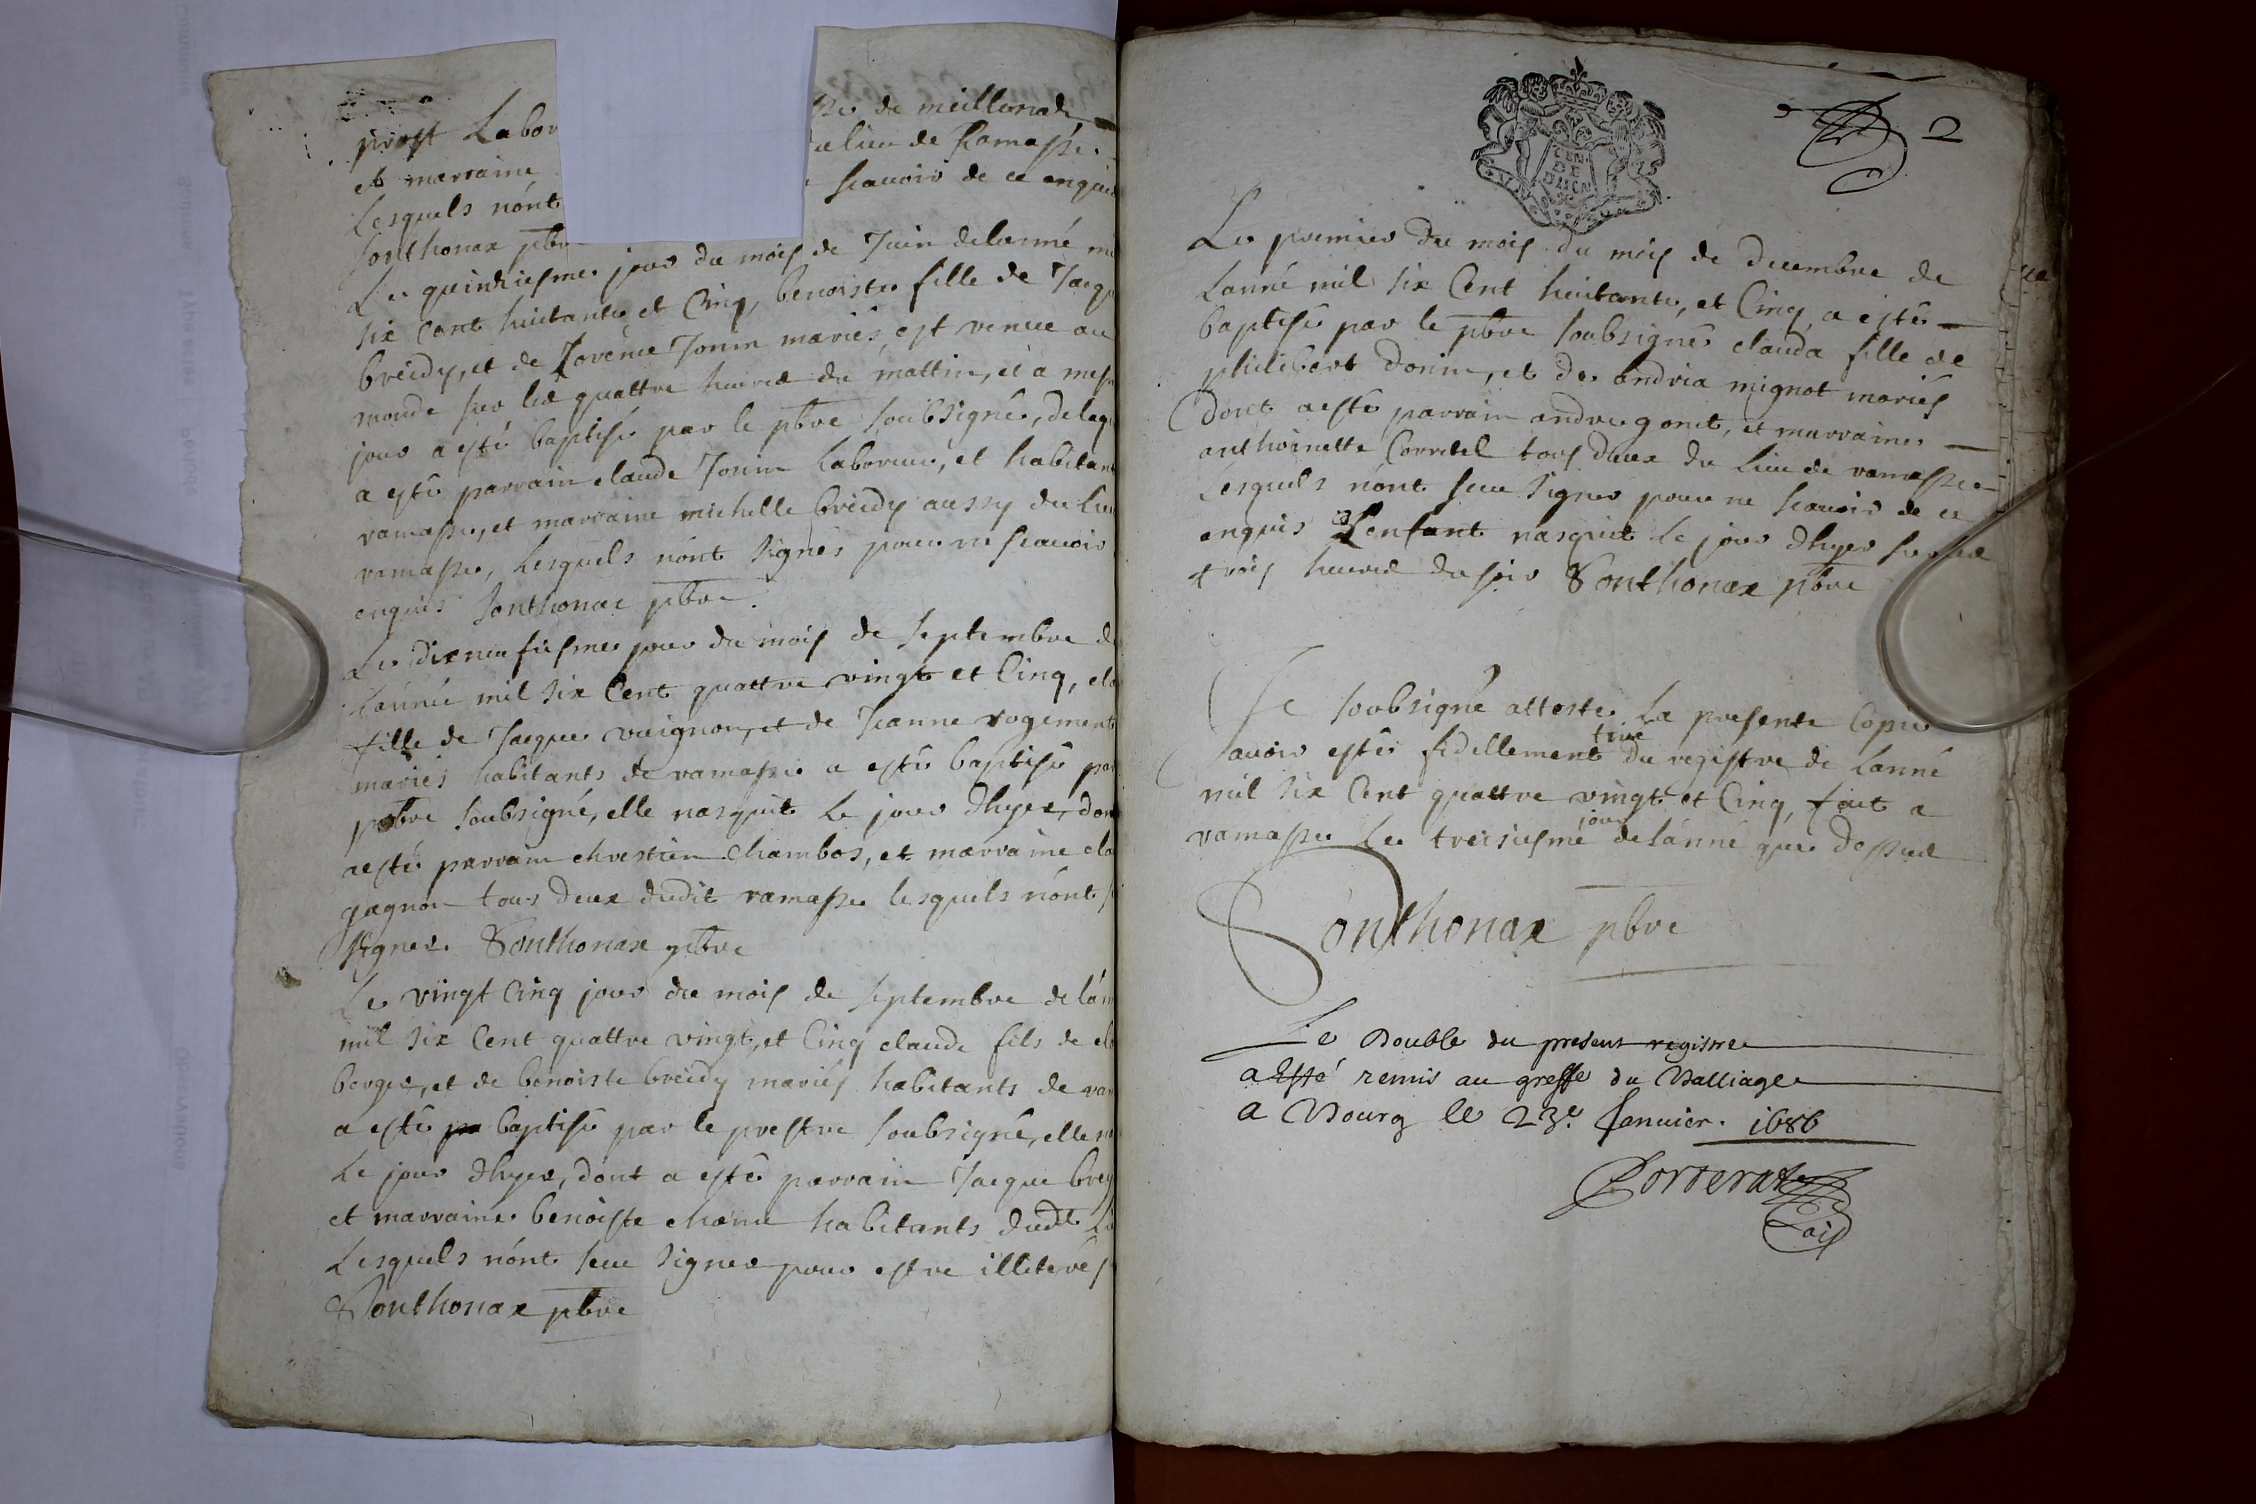 prost Labor
sse de meillonade
et marraine
le lieu de Ramasse
Lesquels nónt
scauoir de ce enquis
Sonthonax pbre
Le quinziesme jour du mois de Juin delanné
six cent huictante et Cinq, benoiste fille de Jacq
breidy, et de Jonin mariés, est venue au
monde sur les quattre heures du mattin, et a mesm
jour a esté baptisé par le pbre soubsigné, de laq
a esté parrain claude Jonin Laboreur, et habitan
ramasse, et marraine michelle breidy aussy du lieu
ramasse, Lesquels nónt signés pour ne scauoir
enquis Sonthonax pbre
Le dixneufiesme jour du mois de septembre d
Lánnée mil six Cent quattre vingt et Cinq, cla
fille de Jacque vuignon, et de Jeanne rogement
mariés habitants de ramasse a esté baptisé par
pbre soubsigné, elle nasquit Le jour dhyer, don
aesté parrain chrestien Chambos, et marraine cla
gagnon tous deux dudit ramasse lesquels nónt s
signer. Sonthonax pbre
Le vingt Cinq jour du mois de septembre de lán
mil six Cent quattre vingt, et Cinq claude fils de cla
berger, et de benoiste breidy mariés habitants de ram
a esté baptisé par le prestre soubsigné, elle n
Le jour dhyer, dont a esté parrain Jacque brey
et marraine benoiste habitants dudt
Lesquels nónt sceu signer pour estre illiterés
Sonthonax pbre
2
GEN
DE
Le premier du mois du mois de decembre de
Lanné mil six Cent huictante, et Cinq a esté
baptisé par le pbre soubsigné clauda fille de
philibert donin, et de andria mignot mariés
dont aesté parrain andre gonet, et marraine
anthoinette Corretel tous deux du lieu de ramasse
Lesquels nónt sceu signer pour ne scauoir de ce
enquis L'enfant nasquit Le jour dhyer sur les
trois heures du soir Sonthonax pbre
Je soubsigné atteste La presente Copie
auoir esté fidellement tiré du registre de Lanné
mil six Cent quattre vingt et Cinq, fait a
ramasse Le treisiesme jour de lánné que dessus
Sonthonax pbre
Le Double du present registre
a Esté remis au greffe du Balliage
a Bourg le 23e Januier. 1686